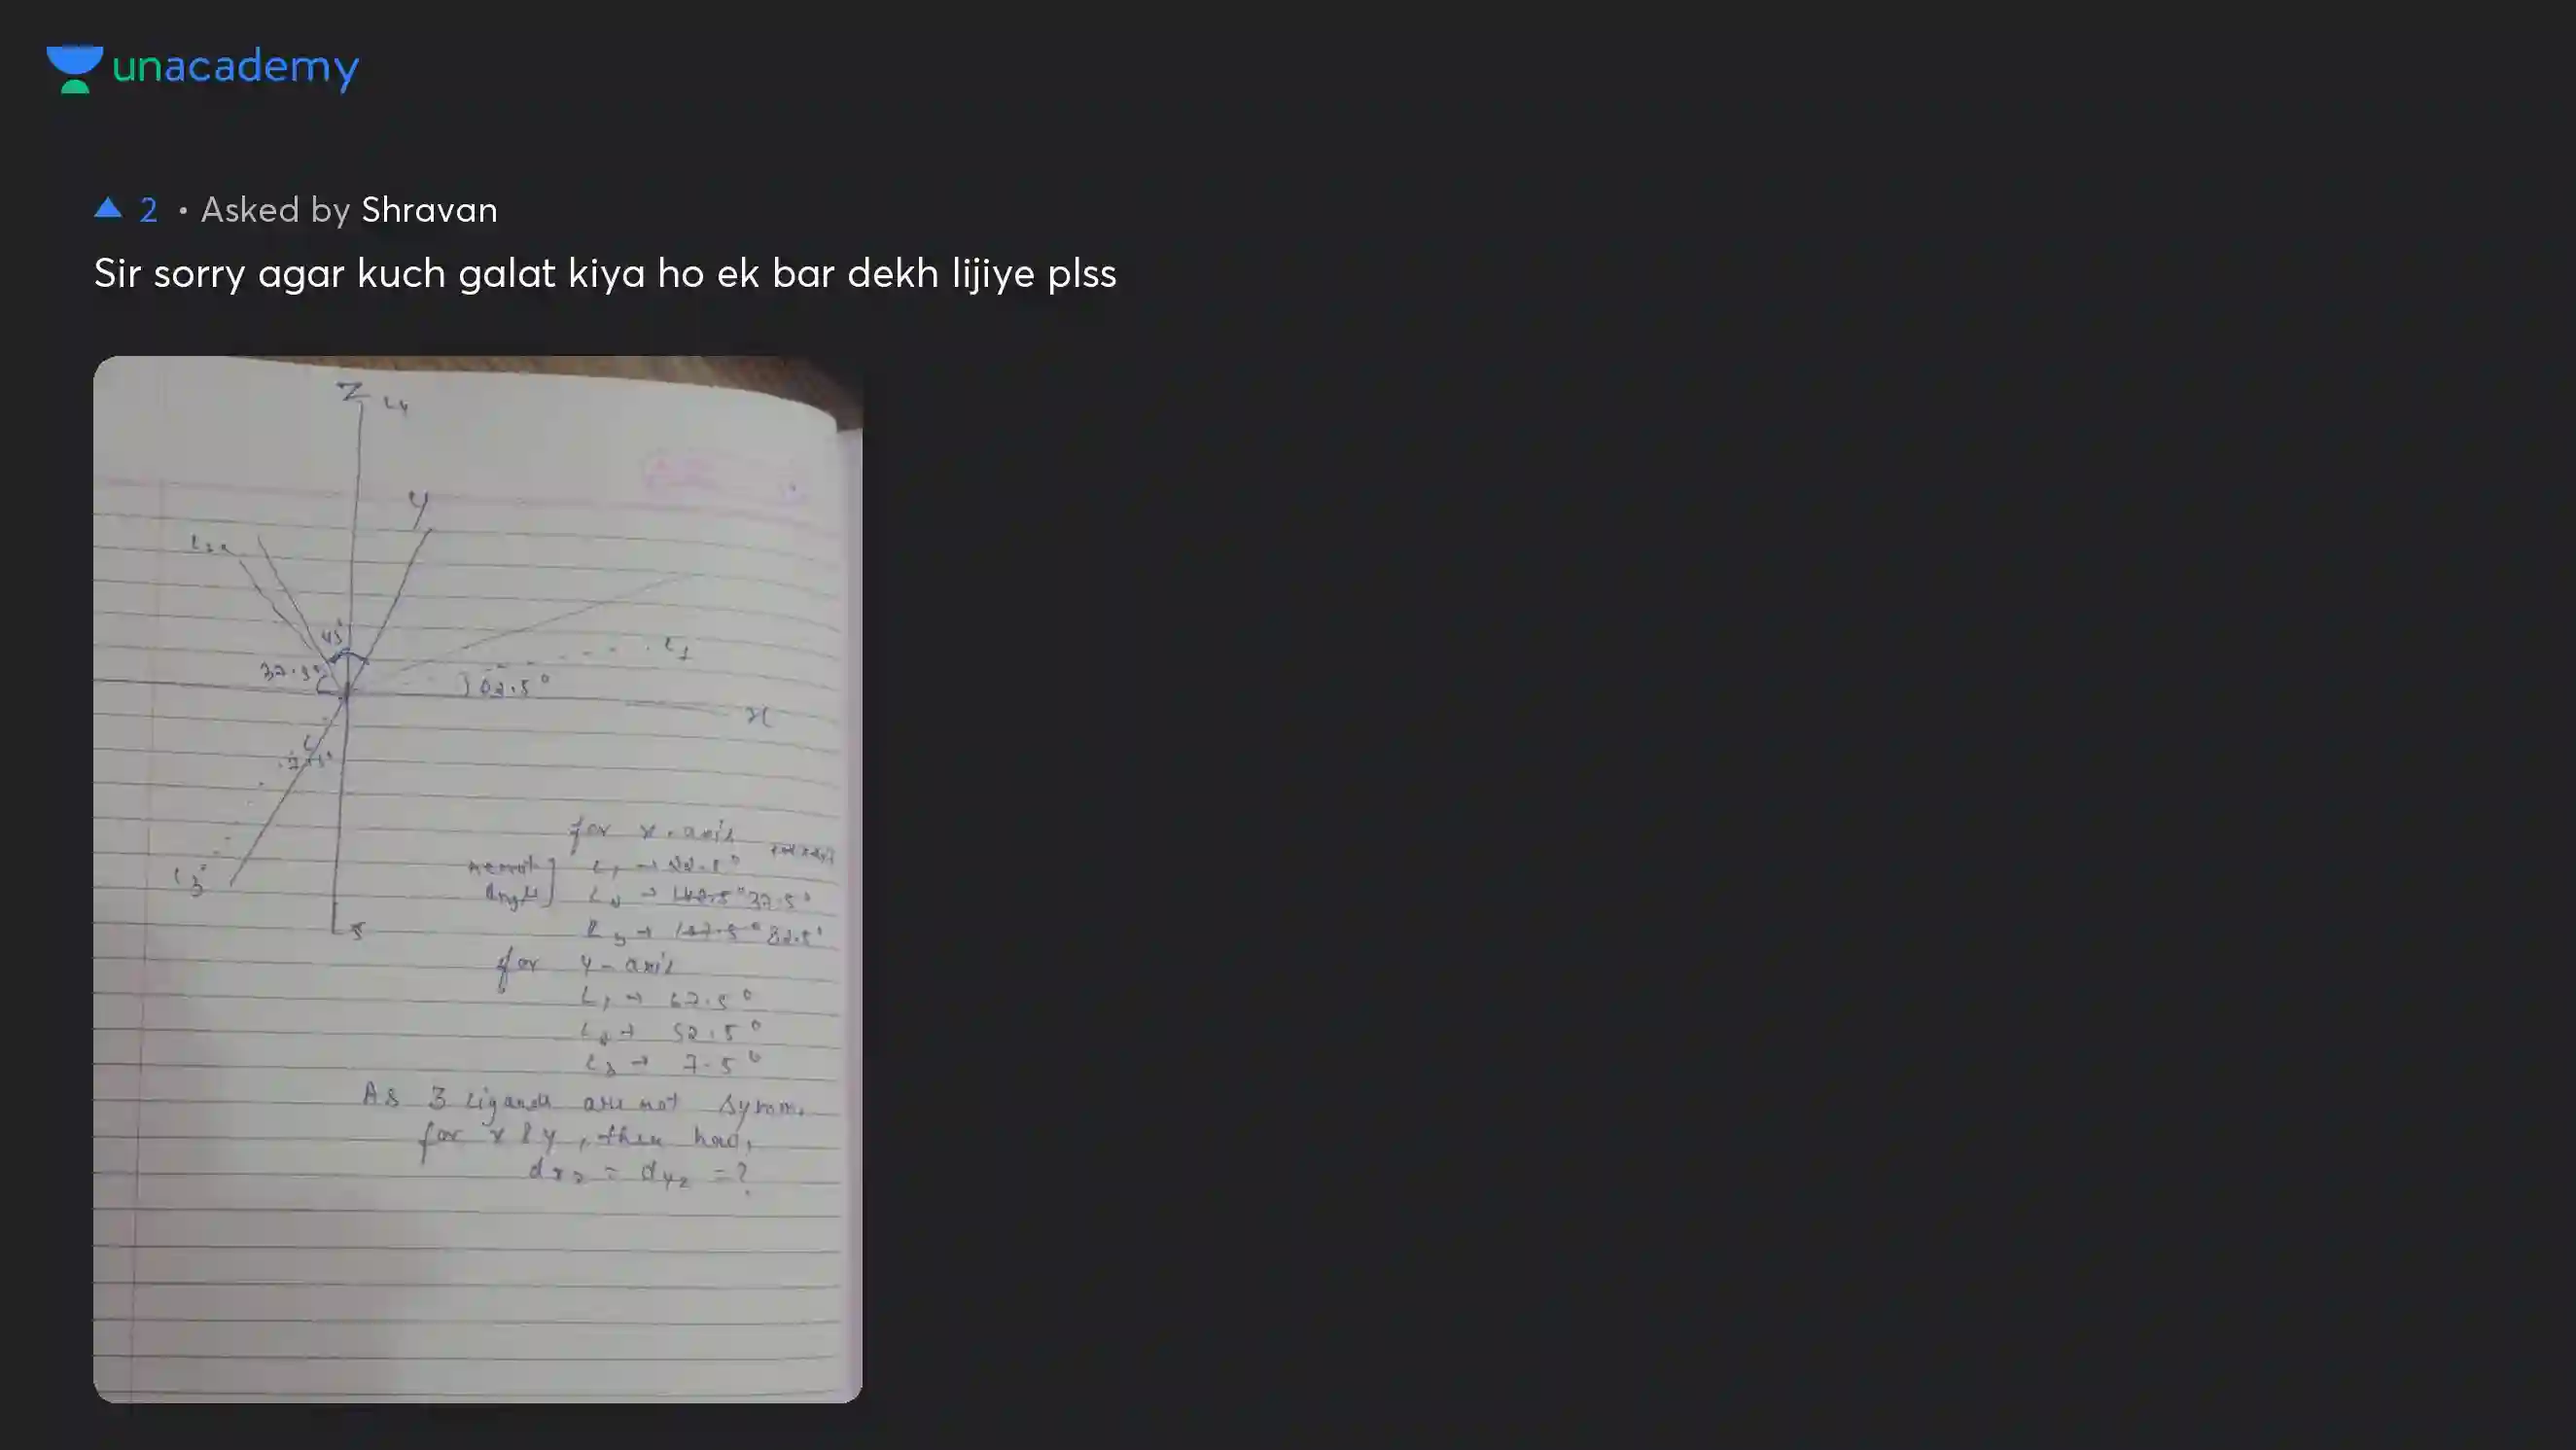 unacademy
2 • Asked by Shravan
Sir sorry agar kuch galat kiya ho ek bar dekh lijiye plss
Z L4
y
45°
L1
22.5°
x
L3
L5
for x-axis
L1 → 22.5°
L2 → 142.5° 37.5°
L3 → 82.5°
for y-axis
L1 → 67.5°
L2 → 52.5°
L3 → 7.5°
As 3 Ligands are not symm.
for x & y, then how,
dxz = dyz = ?